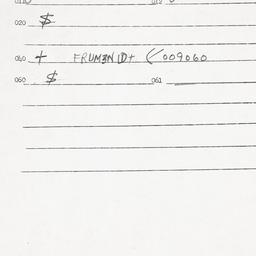 020 $
040 + FRUMENID+ (009060
060 $ 061